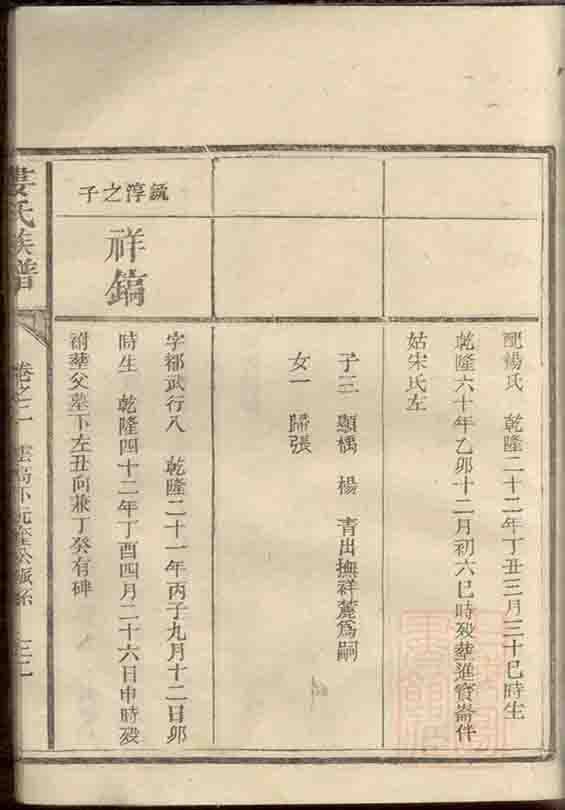 配楊氏 乾隆二十二年丁丑三月三十巳時生
乾隆六十年乙卯十二月初六巳時殁塟進寳崙伴
姑宋氏左
子三 顯楀 楊 青出撫祥麓爲嗣
女一 歸張
毓淳之子
祥鎬
字都武行八 乾隆二十一年丙子九月十二日卯
時生 乾隆四十二年丁酉四月二十六日申時殁
祔塟父墓下左丑向兼丁癸有碑
婁氏族譜
卷之二